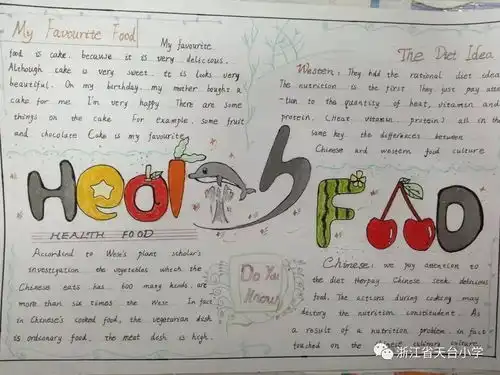 My Favourite Food
My favourite
food is cake. because it is very delicious.
Although cake is very sweet. It is looks very
beautiful. On my birthday. my mother bought a
cake for me. I'm very happy There are some
things on the cake. For example. some fruit
and chocolate Cake is my favourite
The Diet Idea
Western: They hdd the rational diet idea
The nutrition is the first They just pay atte
-tion to the quantity of heat, vitamin and
protein. (heat vitamin protein) all in the
same key the differences between
Chinese and western food culture
Health
FOOD
HEALTH FOOD
Accordind to Wese's plant scholar's
investigation the vegetables which the
Chinese eats has 600 many kinds. are
more than six times the West In fact
in Chinese's cooked food, the vegetarian dish
is ordionary food, the meat dish is high.
Do You
Know
Chinese: we pay attention to
the diet therpay Chinese seek delicious
food. The actions during cooking may
destory the nutrition constitudent. As
a result of a nutrition problem. in fact
touched on the Chinese culinary culture
浙江省天台小学